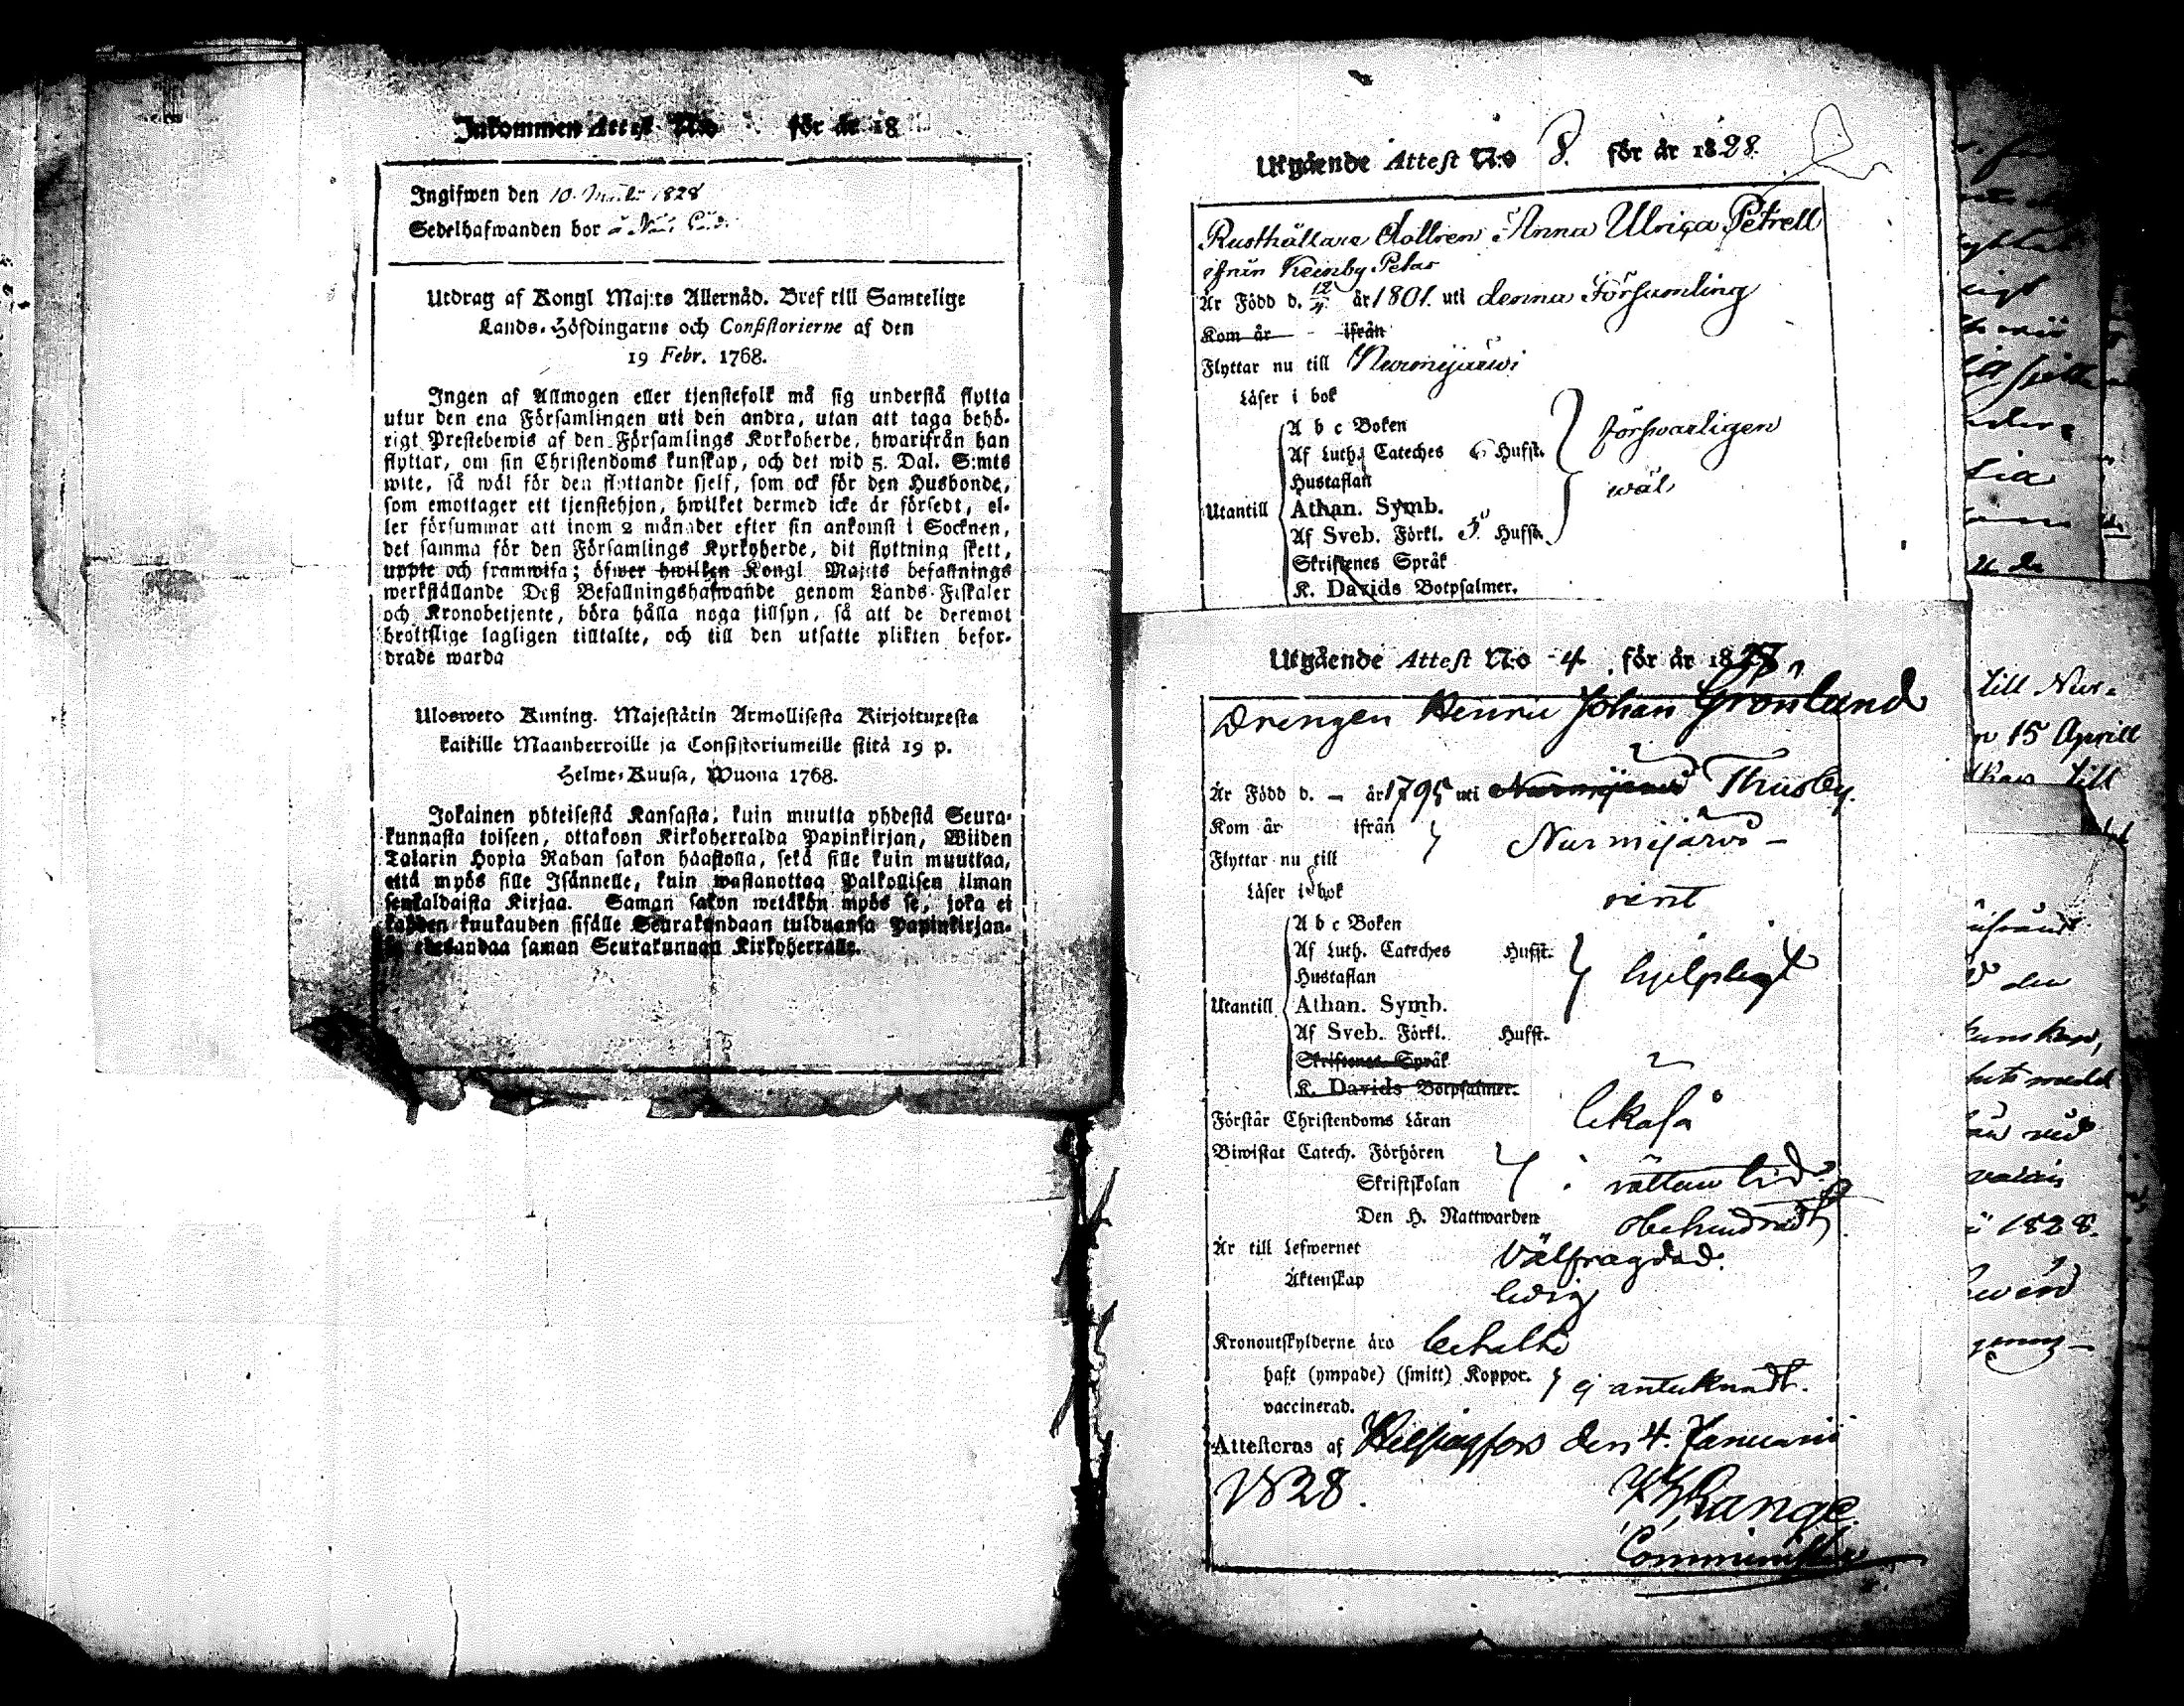 Inkommen Attest N:o för år 18
Ingifwen den 10 1828
Sedelhafwanden bor å
Utdrag af Kongl Maj:ts Allernåd. Bref till Samtelige
Lands-Höfdingarne och Consistorierne af den
19 Febr. 1768.
Ingen af Allmogen eller tjenstefolk må sig understå flytta
utur den ena Församlingen uti den andra, utan att taga behö-
rigt Prestebewis af den Församlings Kyrkoherde, hwarifrån han
flyttar, om sin Christendoms kunskap, och det wid 5. Dal. S:mts
wite, så wäl för den flyttande sjelf, som ock för den Husbonde,
som emottager ett tjenstehjon, hwilket dermed icke är försedt, el-
ler försummar att inom 2 månader efter sin ankomst i Socknen,
det samma för den Församlings Kyrkoherde, dit flyttning skett,
uppte och framwisa; öfwer hwilken Kongl Maj:ts befallnings
werkställande Deß Befallningshafwande genom Lands-Fiskaler
och Kronobetjente, böra hålla noga tillsyn, så att de deremot
brottslige lagligen tilltalte, och till den utsatte plikten befor-
drade warda
Ulosweto Kuning. Majestätin Armollisesta Kirjoituxesta
kaikille Maanherroille ja Consistoriumeille siitä 19 p.
Helme-Kuusa, Wuona 1768.
Jokainen yhteisestä Kansasta, kuin muutta yhdestä Seura-
kunnasta toiseen, ottakoon Kirkoherralda Papinkirjan, Wiiden
Talarin Hopia Rahan sakon haastolla, sekä sille kuin muuttaa,
että myös sille Isännelle, kuin wastanottaa Palkollisen ilman
senkaldaista Kirjaa. Saman sakon wetäkön myös se, joka ei
kahden kuukauden sisälle Seurakundaan tulduansa Papinkirjan-
sa edesandaa saman Seurakunnan Kirkoherralle.
Utgående Attest N:o 8. för år 1828.
Rusthållare dottren Anna Ulrica Petrell
ifrån Petas
Är Född d. 12/4 år 1801. uti denna Församling
Kom år ifrån
Flyttar nu till Nurmijärwi
Läser i bok
A b c Boken
Af Luth. Cateches 6 Hufst. försvarligen
Hustaflan
Utantill Athan. Symb. wäl
Af Sveb. Förkl. 3 Hufst.
Skriftenes Språk
K. Davids Botpsalmer.
Utgående Attest N:o 4. för år 1828.
Drengen Henric Johan Grönland
Är Född d. – år 1795 uti Nurmijärwi Thusby.
Kom år ifrån
Flyttar nu till Nurmijärvi –
Läser i bok rent
A b c Boken
Af Luth. Cateches Hufst.
Hustaflan hjelpligt
Utantill Athan. Symb.
Af Sveb. Förkl. Hufst.
Skriftenes Språk
K. Davids Botpsalmer.
Förstår Christendoms Läran likaså
Biwistat Catech. Förhören
Skriftskolan i rättan tid
Den H. Nattwarden obehindradt
Är till Lefwernet Välfrägdad.
Äktenskap ledig
Kronoutskylderne äro betalte
haft (ympade) (smitt) Koppor. ej antecknadt.
vaccinerad.
Attesteras af Helsingfors den 4. Januarii
1828.
Comminister
till Nur-
15 Aprill
till
den
1828.